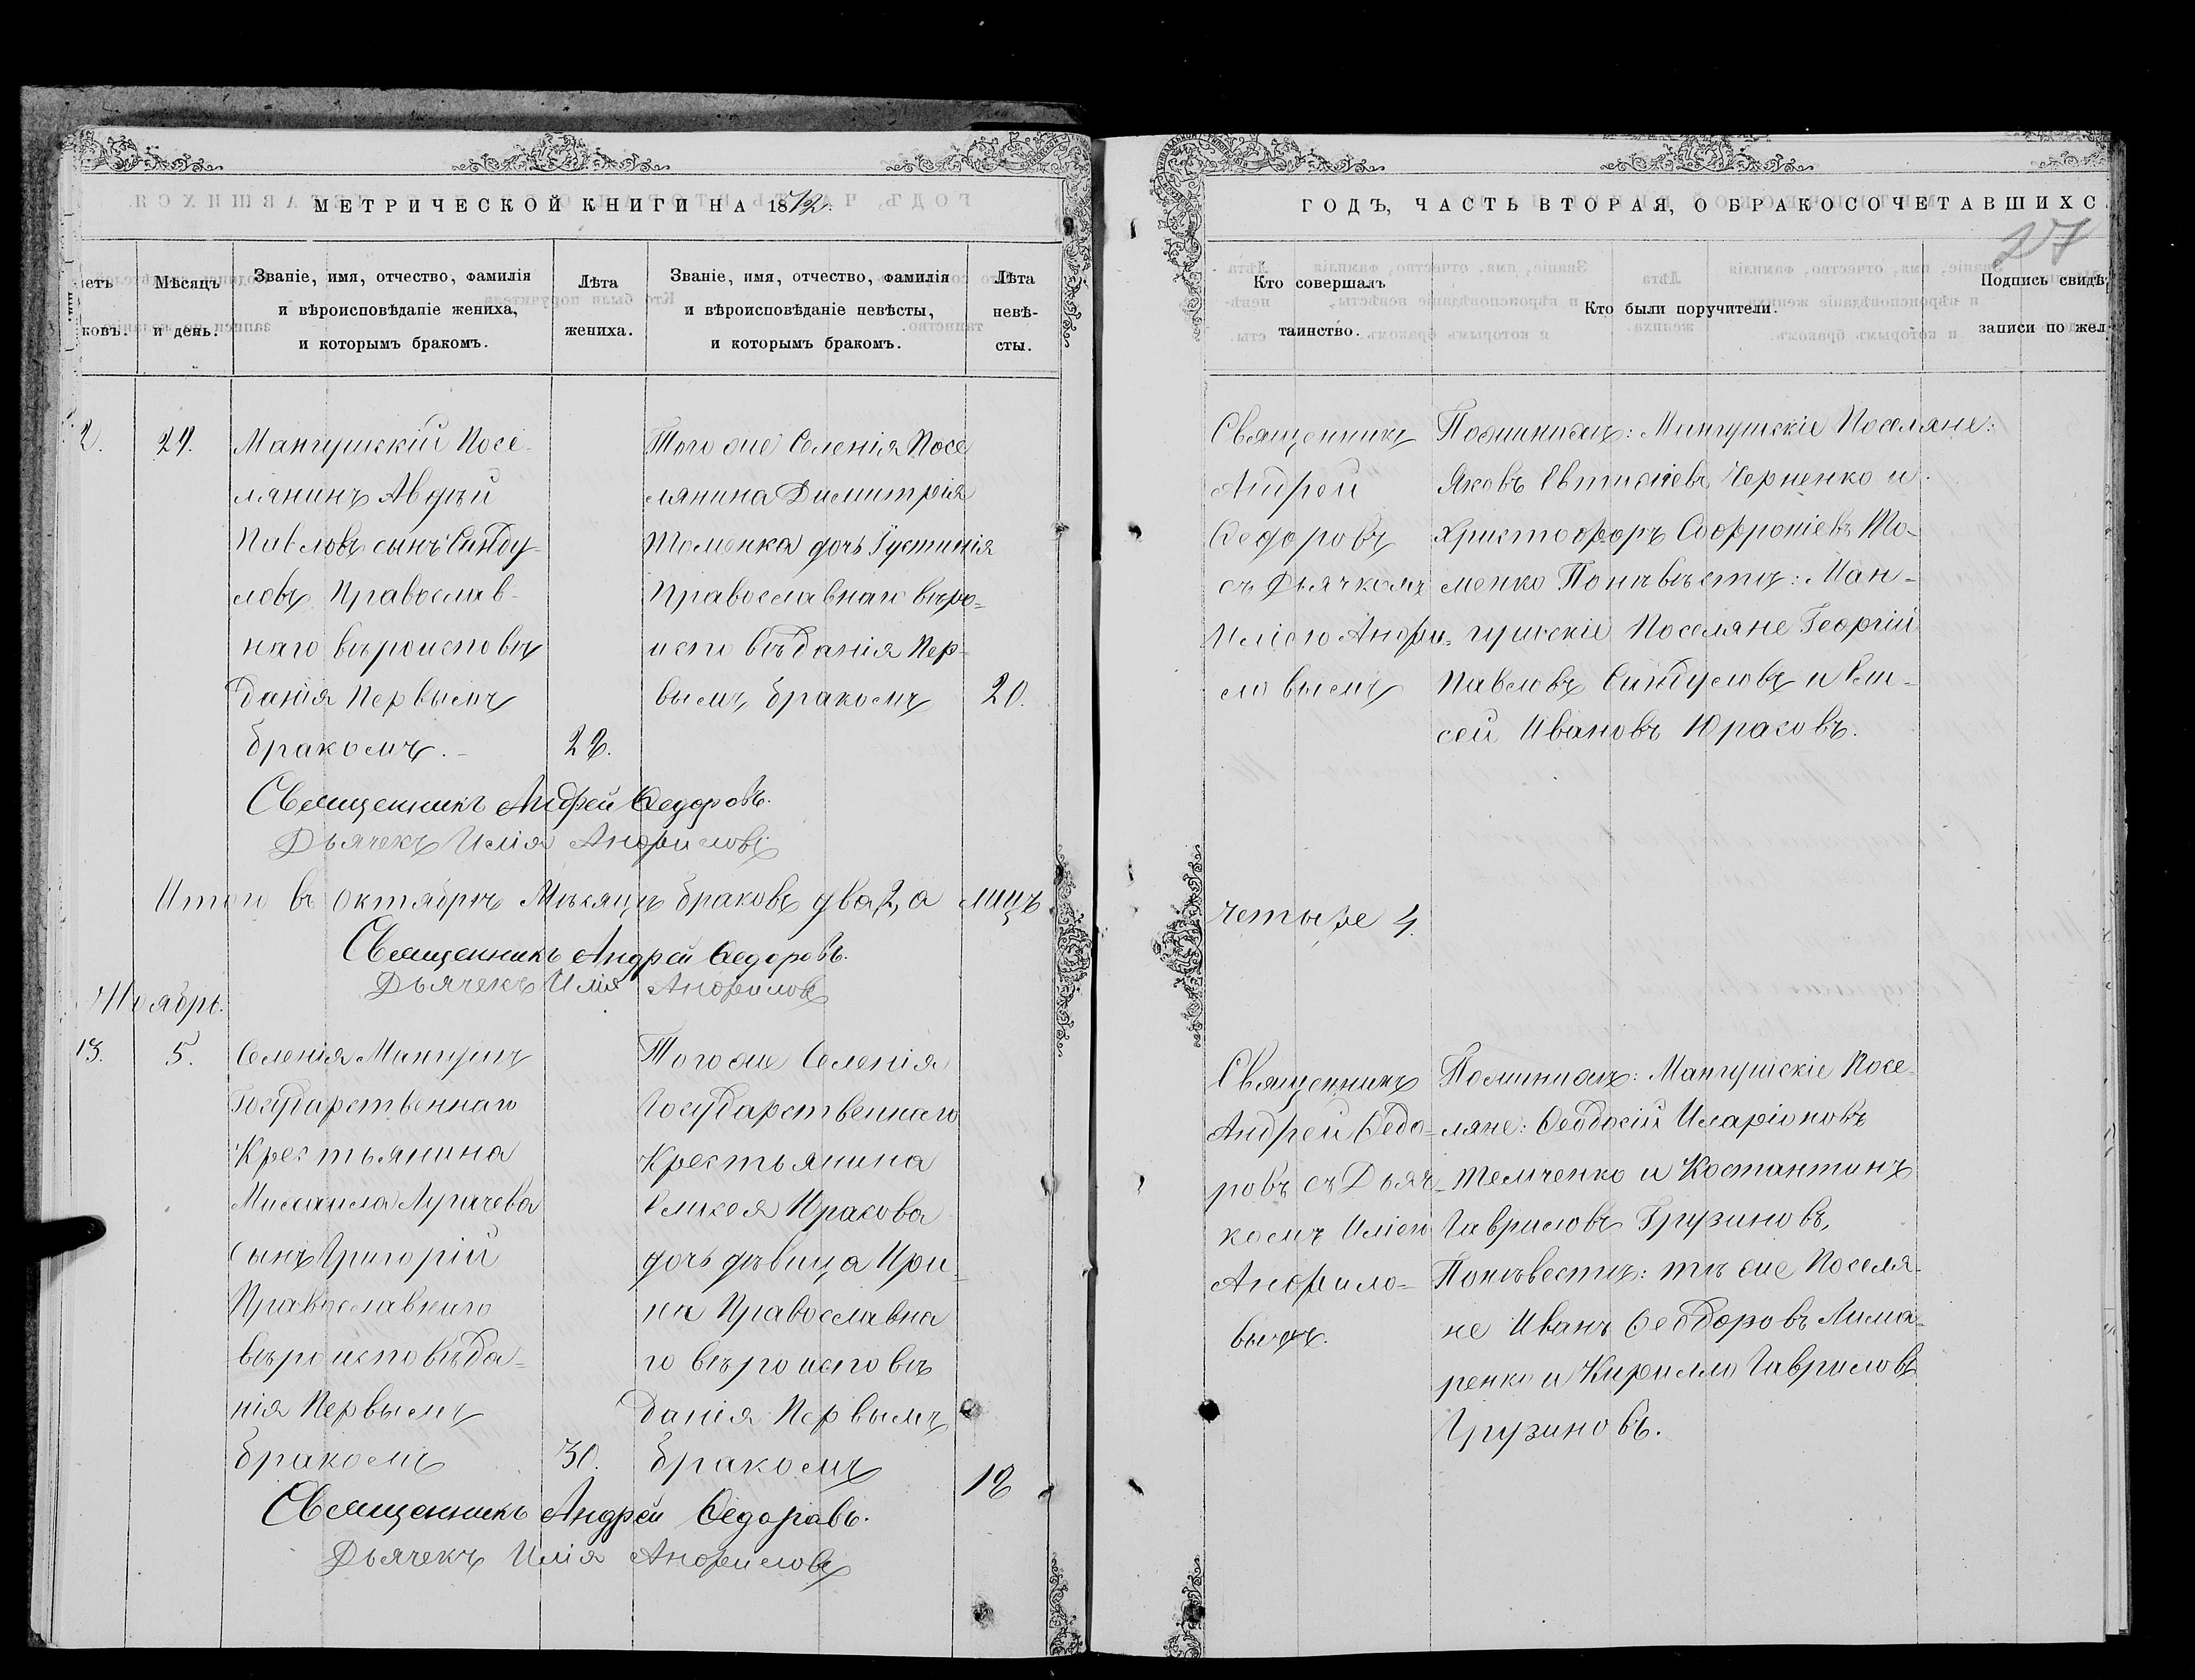 МЕТРИЧЕСКОЙ КНИГИ НА 1872.
Мѣсяцъ и день.
Званіе, имя, отчество, фамилія и вѣроисповѣданіе жениха, и которымъ бракомъ.
Лѣта жениха.
Званіе, имя, отчество, фамилія и вѣроисповѣданіе невѣсты, и которымъ бракомъ.
Лѣта невѣ-
сты.
2.
29.
Мангушскій Посе-
лянинъ Авдѣй
Павловъ сынъ Синду-
ловъ Православ-
наго вѣроисповѣ
данія Первымъ
бракомъ.-
22.
Того же Селенія Посе
лянина Димитрія
Томенка дочь Іустинія
Православнаго вѣро-
исповѣданія Пер-
вымъ бракомъ
20.
Священникъ Андрей Ѳедоровъ.
Дьячекъ Илія Анфиловъ
Итого въ Октябрѣ Мѣсяцѣ браковъ два, 2, а лицъ
Священникъ Андрей Ѳедоровъ.
Дьячекъ Илія Анфиловъ
Ноябрь.
13.
5.
Селенія Мангушъ
Государственнаго
Крестьянина
Михаила Лугачева
Сынъ Григорій
Православнаго
вѣроисповѣда-
нія Первымъ
бракомъ
30.
Того же Селенія
Государственнаго
Крестьянина
Елисея Юракова
дочь дѣвица Ири-
на Православна
го вѣроисповѣ
данія Первымъ
бракомъ
18
Священникъ Андрей Ѳедоровъ.
Дьячекъ Илія Анфиловъ
ГОДЪ, ЧАСТЬ ВТОРАЯ, О БРАКОСОЧЕТАВШИХС
27
Кто совершалъ таинство.
Кто были поручители.
Подпись свидѣ
записи по жел
Священникъ
Андрей
Ѳедоровъ
съ Дьячкомъ
Иліею Анфи-
ловымъ
По женихѣ: Мангушскіе Поселяне:
Яковъ Евтихіевъ Черненко и
Христофоръ Софроніевъ То-
менко По невѣстѣ: Ман-
гушскіе Поселяне Георгій
Павловъ Синдуловъ и Ели-
сей Ивановъ Юраковъ.
четыре 4.
Священникъ
Андрей Ѳедо-
ровъ съ Дьяч-
комъ Иліею
Анфило-
вымъ.
По женихѣ: Мангушскіе Посе-
ляне: Ѳеодосій Иларіоновъ
Темченко и Костантинъ
Гавриловъ Грузиновъ,
По невѣстѣ: тѣ же Поселя-
не Иванъ Ѳеодоровъ Лима-
ренко и Кирилло Гавриловъ
Грузиновъ.